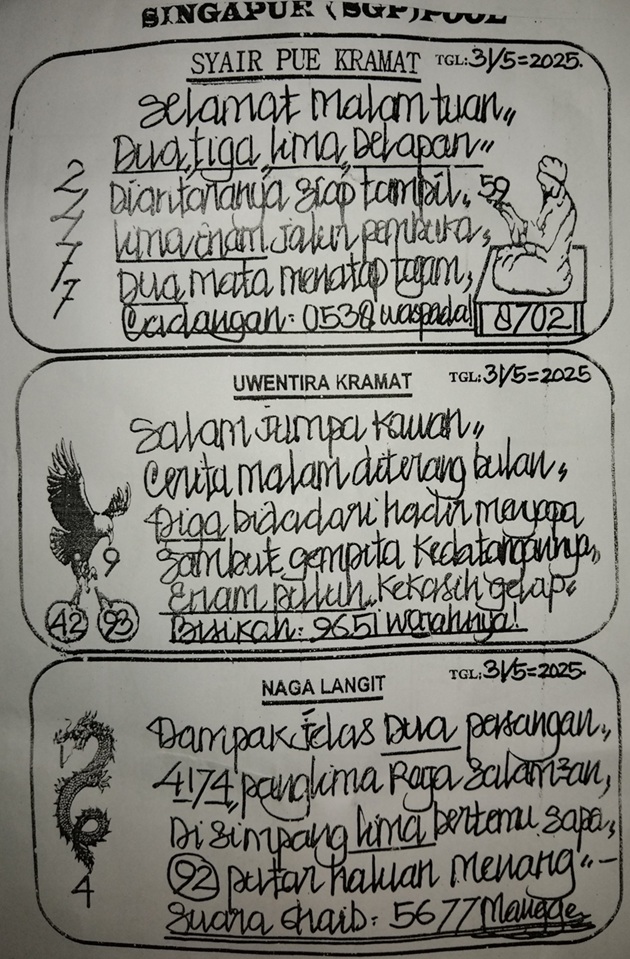 SINGAPUR (SGP)POOL
SYAIR PUE KRAMAT TGL:31/5=2025.
Selamat malam tuan,,
Dua, tiga, lima, Delapan"
2, Diantaranya siap tampil, 59
4 lima enam jalur pembuka,
7 Dua mata menatap tajam,
7 Cadangan: 0538 waspada!
8702
UWENTIRA KRAMAT TGL:31/5=2025
Salam jumpa kawan,,
Cerita malam diterang bulan,
Diga bidadari hadir menyapa
9 Sambut gempita kedatangannya,,
42 93 Enam puluh,, kekasih gelap
Bisikan: 9651 warahnya!
NAGA LANGIT TGL:31/5=2025.
Dampak jelas Dua persangan,,
4174, panglima Raga
Disimpang lima bertemu sapa,
92 putar haluan menang "–
4
Suara Ghaib: 5677 Mangge